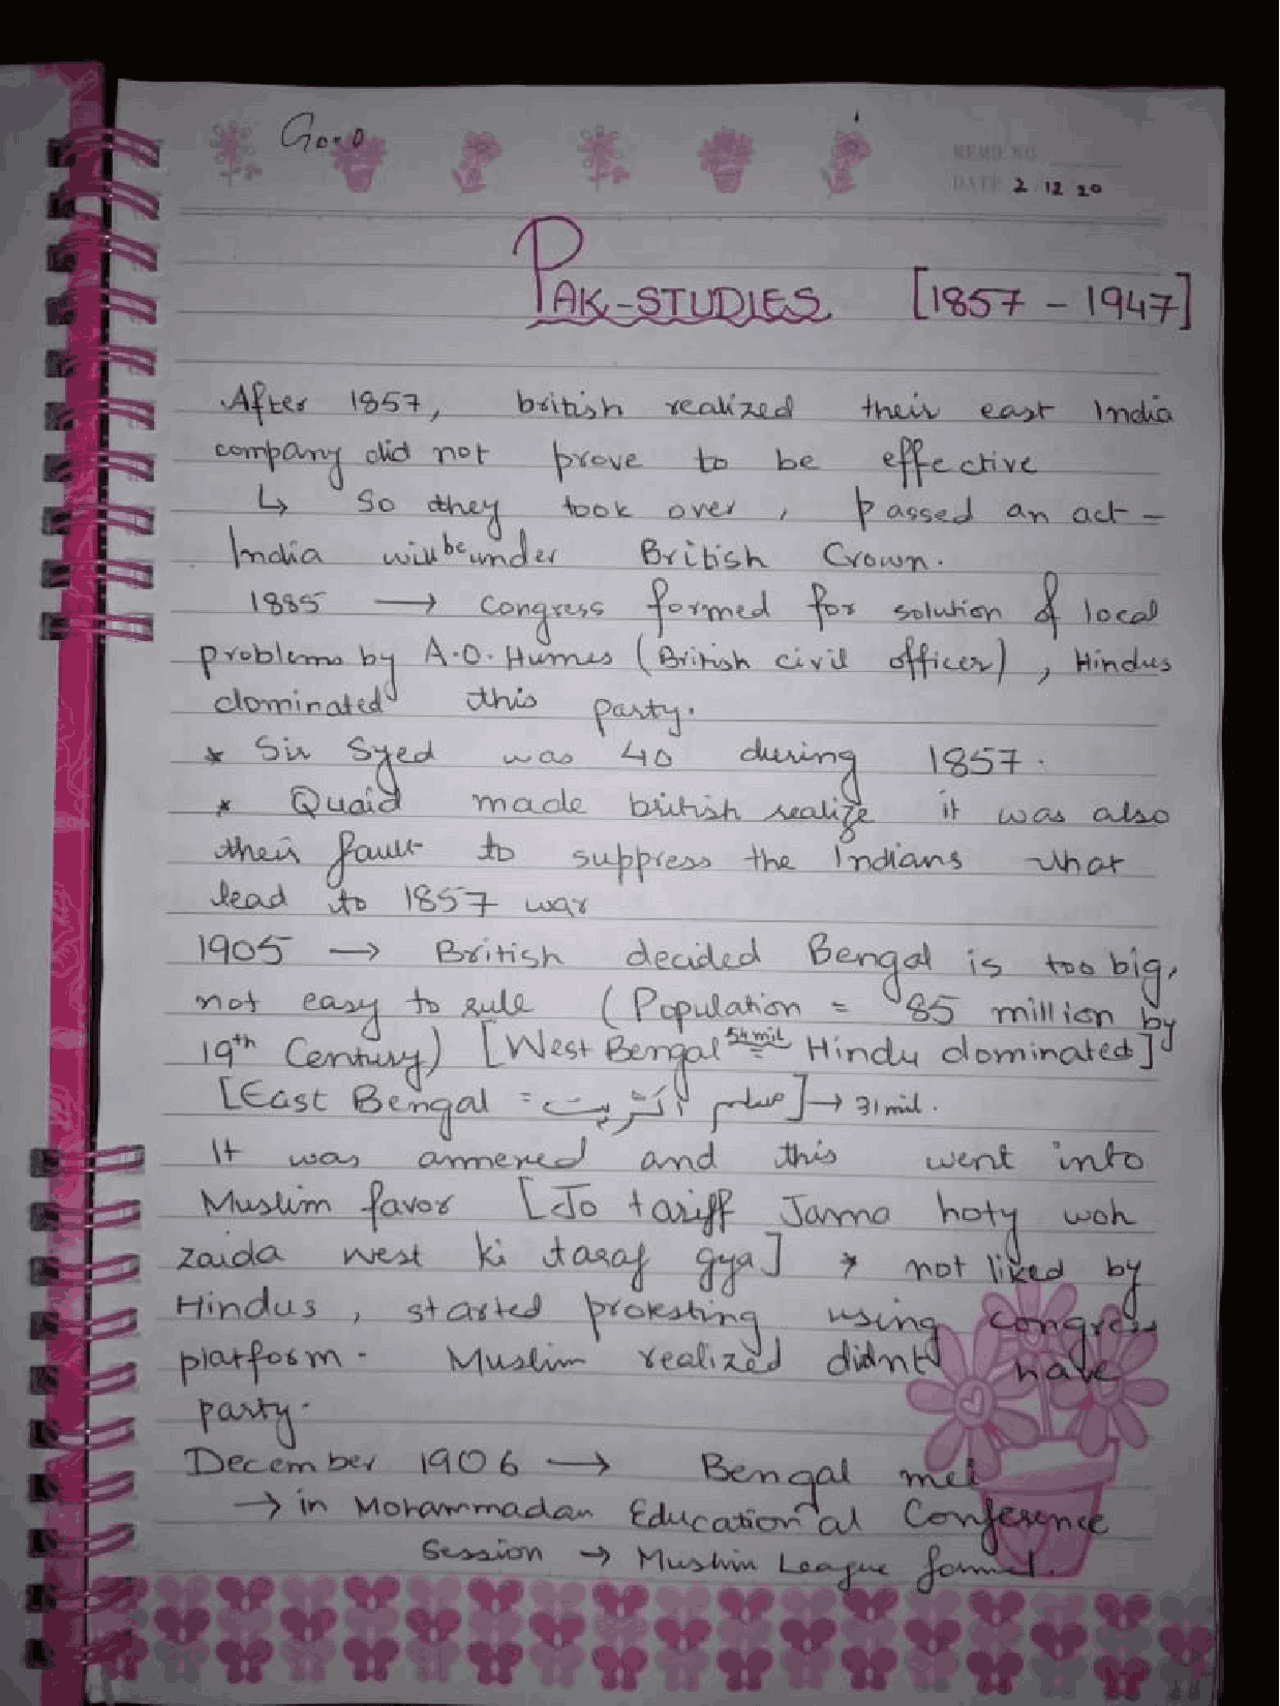 Good
MEMO NO
DATE 2 12 20
PAK-STUDIES [1857 - 1947]
After 1857, british realized their east India
company did not prove to be effective
↳ So they took over, passed an act -
India will be under British Crown.
1885 → Congress formed for solution of local
problems by A.O. Humes (British civil officer), Hindus
dominated this party.
* Sir Syed was 40 during 1857.
* Quaid made british realize it was also
their fault to suppress the Indians that
lead to 1857 war
1905 → British decided Bengal is too big,
not easy to rule (Population = 85 million by
19th Century) [West Bengal 54 mil = Hindu dominated]
[East Bengal = مسلم اکثریت] → 31 mil.
It was annexed and this went into
Muslim favor [Jo tariff Jama hoty woh
zaida west ki taraf gya] * not liked by
Hindus, started protesting using congress
platform - Muslim realized didnt have
party.
December 1906 → Bengal mei
→ in Mohammadan Educational Conference
Session → Muslim League formed.